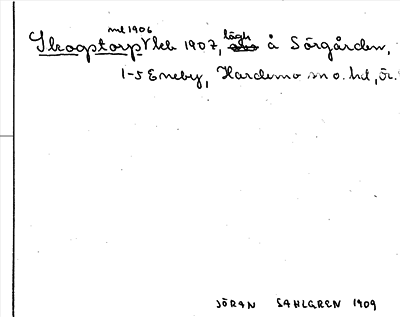 ml 1906
Skogstorp √ kb 1907, lägh å Sörgården,
1-5 Eneby, Hardemo sn o. hd, Ör.
JÖRAN SAHLGREN 1909